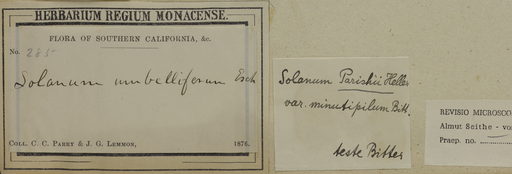 HERBARIUM REGIUM MONACENSE.
FLORA OF SOUTHERN CALIFORNIA, &c.
No. 285
Solanum umbelliferum Esch
COLL. C. C. PARRY & J. G. LEMMON, 1876.
Solanum Parishii Heller
var. minutipilum Bitt.
teste Bitter
REVISIO MICROSCO
Almut Seithe - vo
Praep. no.